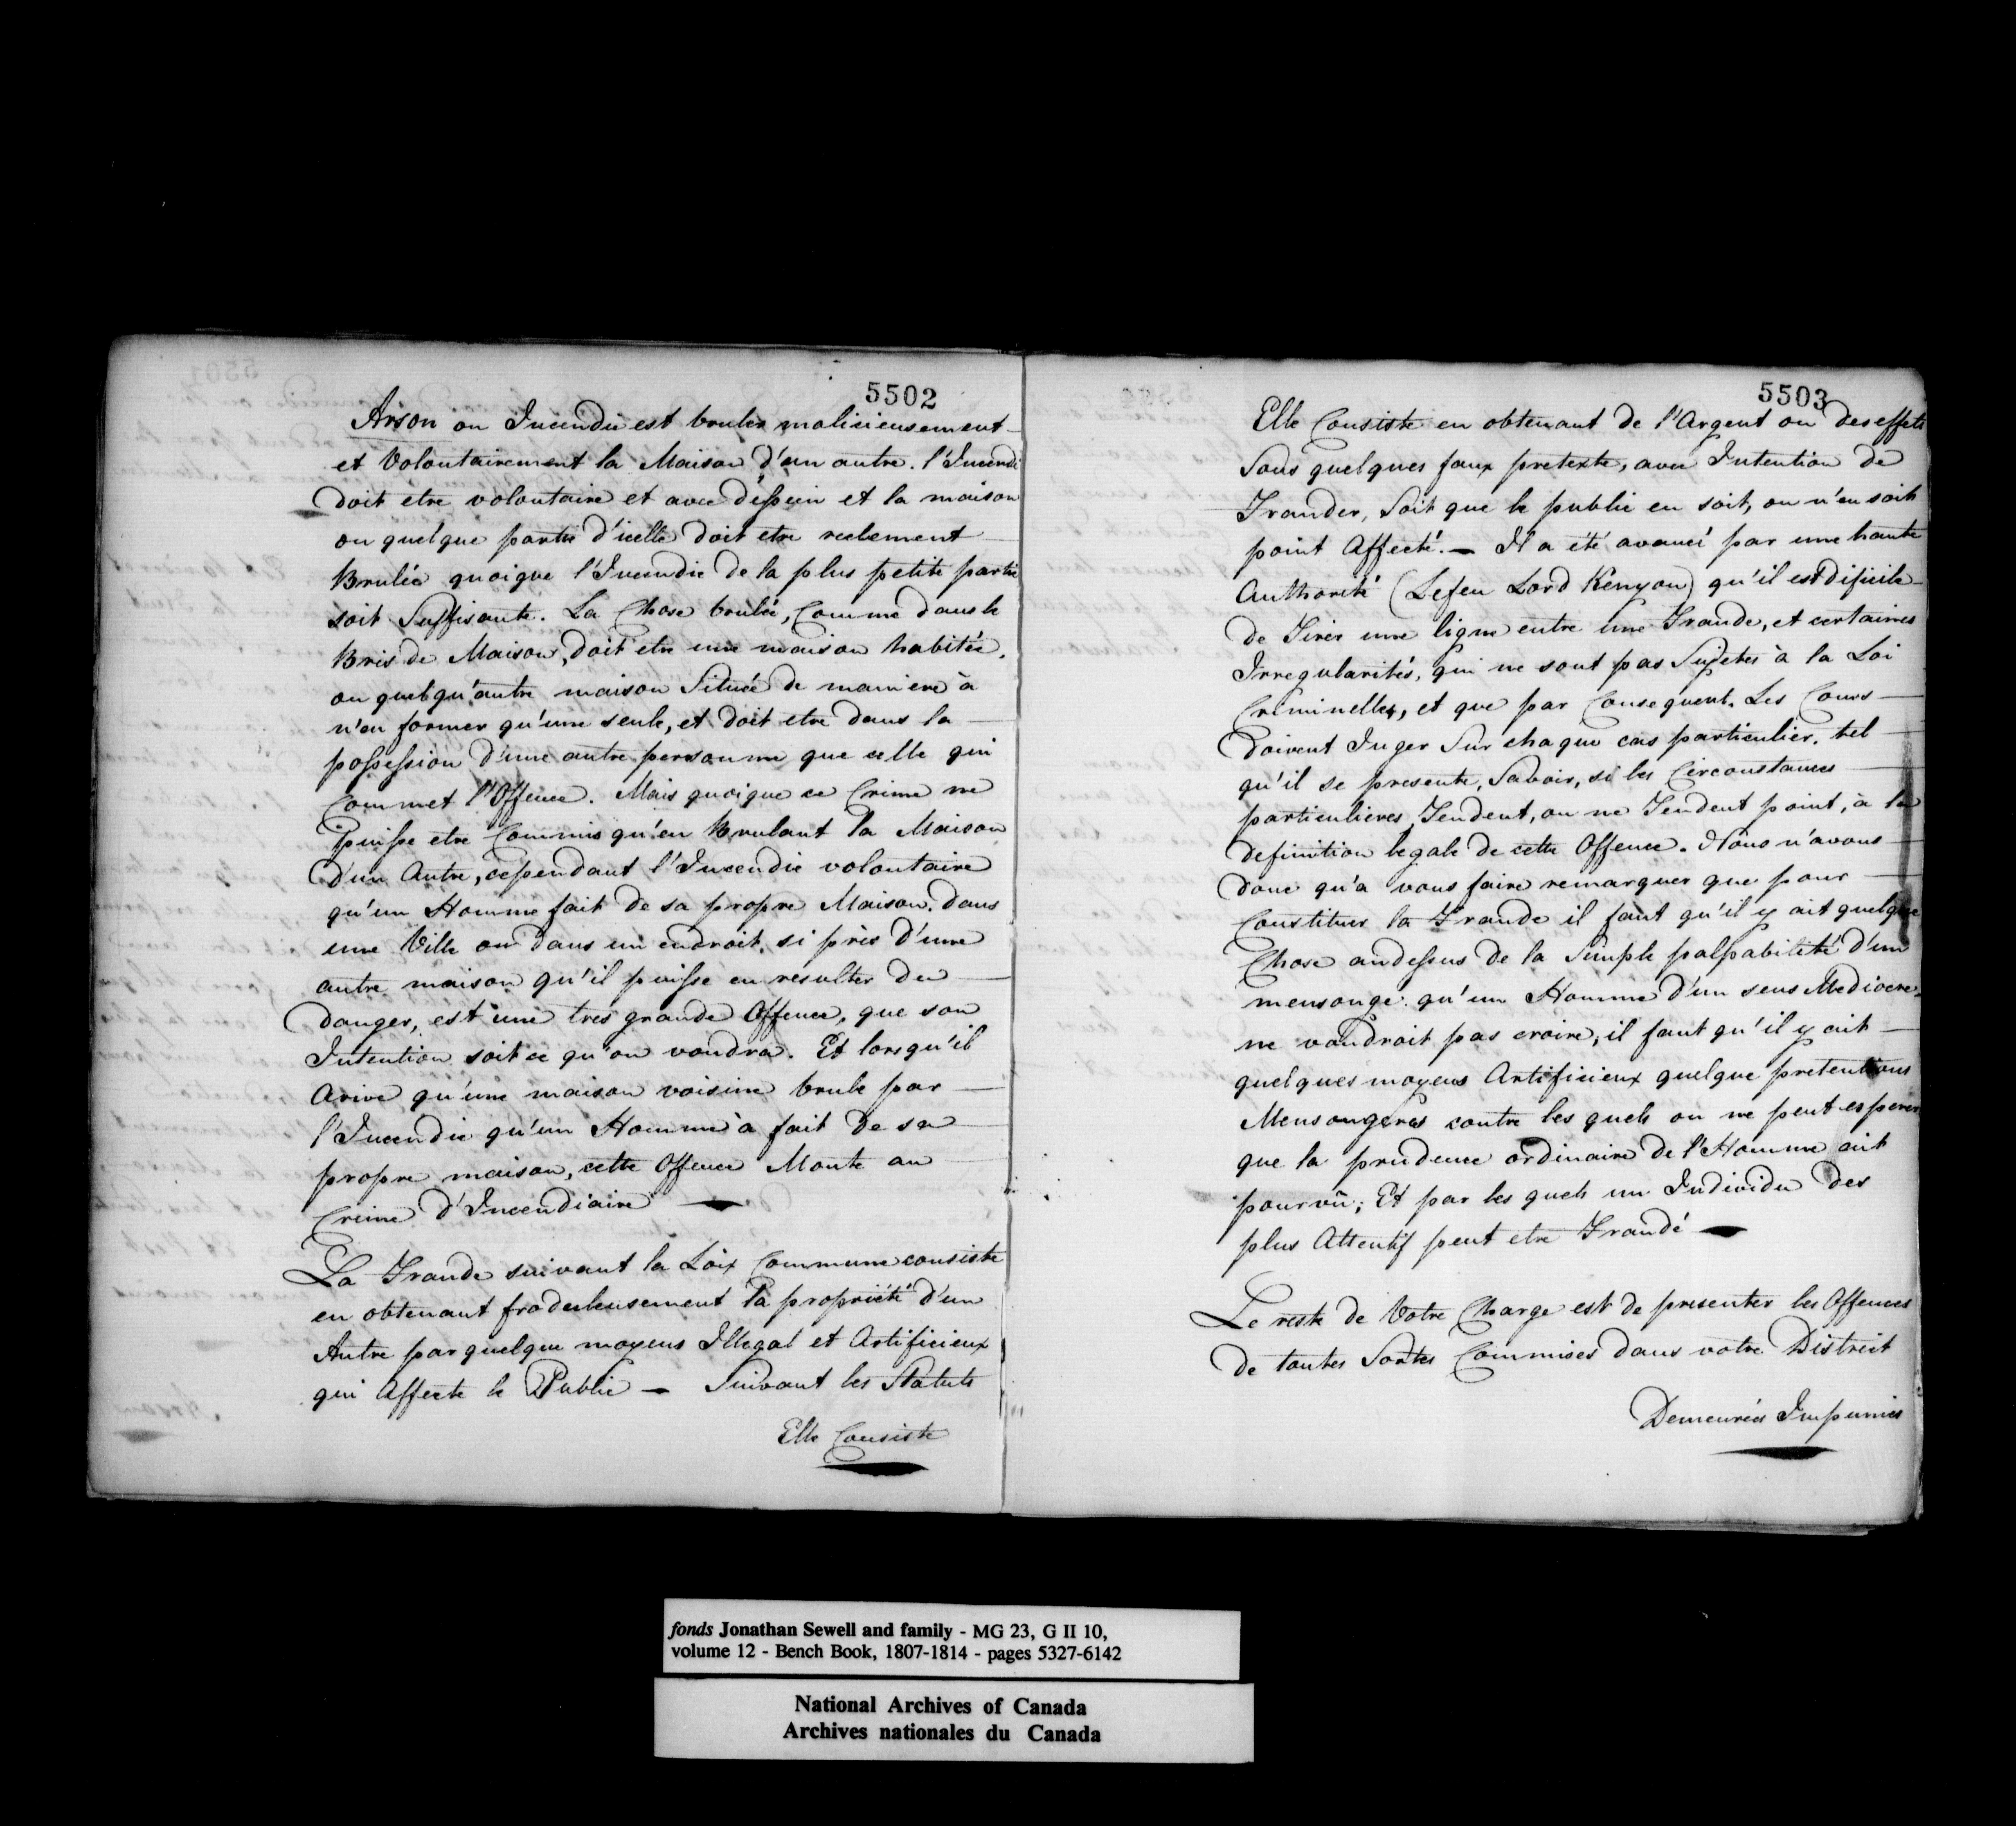 5502
Arson ou Incendie est bruler malicieusement
et Volontairement la Maison d'un autre. l'Incendi
doit etre volontaire et avec dessein et la maison
ou quelque partie d'icelle doit etre reelement
Brulée quoique l'Incendie de la plus petite partie
soit Suffisante. La Chose brulée, Comme dans le
Bris de Maison, doit etre une maison habitée,
ou quelqu'autre maison Située de maniere à
n'en former qu'une seule, et doit etre dans la
possession d'une autre personne que celle qui
Commet l'Offence. Mais quoique ce Crime ne
Puisse etre Commis qu'en Brulant la Maison
d'un Autre, cependant l'Incendie volontaire
qu'un Homme fait de sa propre Maison, dans
une Ville ou dans un endroit, si près d'une
autre maison qu'il puisse en resulter du
danger, est une tres grande Offence, que son
Intention soit ce qu'on voudra. Et lorsqu'il
Arive qu'une maison voisine brule par
l'Incendie qu'un Homme à fait de sa
propre maison, cette Offence Monte au
Crime d'Incendiaire —
La Fraude suivant la Loix Commune consiste
en obtenant froduleusement la propriété d'un
Autre par quelque moyens Illegal et Artificieux
qui Affecte le Public — Suivant les Statuts
Elle Consiste
5503
Elle Consiste en obtenant de l'Argent ou des effets
Sous quelques faux pretexte, avec Intention de
Frauder, Soit que le public en soit, ou n'en soit
point Affecté. — Il a été avancé par une haute
Authorité (Lefeu Lord Kenyon) qu'il est dificile
de Tirer une ligne entre une Fraude, et certaines
Irregularités, qui ne sont pas Sujetes à la Loi
Criminelles, et que par Consequent, Les Cours
doivent Juger Sur chaque cas particulier, tel
qu'il se presente, Savoir, si les Circonstances
particulieres, Tendent, ou ne Tendent point, à la
definition legale de cette Offence. Nous n'avons
donc qu'a vous faire remarquer que pour
Constituer la Fraude il faut qu'il y ait quelque
Chose audessus de la Simple palpabilité d'un
mensonge qu'un Homme d'un sens Mediocre
ne voudroit pas croire, il faut qu'il y ait
quelques moyens Artificieux quelque pretentions
Mensongeres contre les quels on ne peut esperer
que la prudence ordinaire de l'Homme ait
pourvû; Et par les quels un Individu des
plus Attentif peut etre Fraudé —
Le reste de Votre Charge est de presenter les Offences
de toutes Sortes Commises dans votre District
Demeurées Impunies
fonds Jonathan Sewell and family - MG 23, G II 10,
volume 12 - Bench Book, 1807-1814 - pages 5327-6142
National Archives of Canada
Archives nationales du Canada